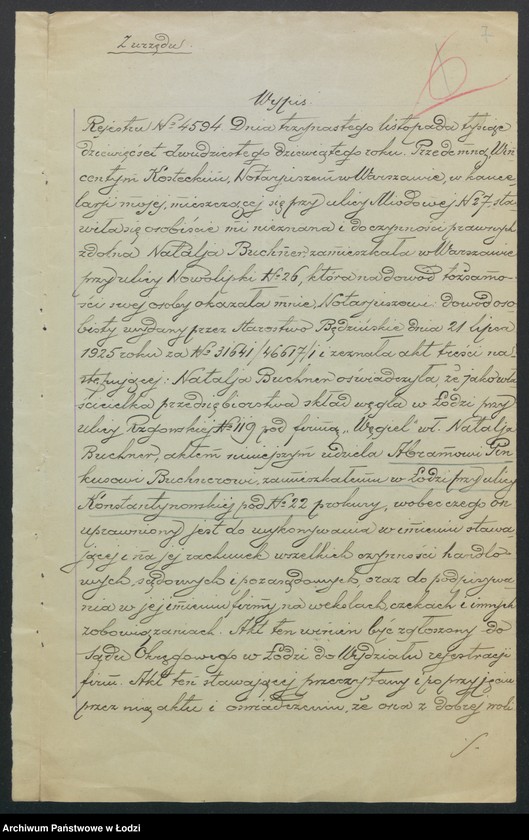 Z urzędu.
7
Wypis.
Rejestru № 4594 Dnia trzynastego listopada tysiąc
dziewięćset dwudziestego dziewiątego roku. Przedemną, Win
centym Kosteckim, Notarjuszem w Warszawie, w kance
larji mojej, mieszczącej się przy ulicy Miodowej № 7, sta
wiła się osobiście mi nieznana i do czynności prawnych
zdolna Natalja Buchner, zamieszkała w Warszawie
przy ulicy Nowolipki № 26, która na dowód tożsamo-
ści swej osoby okazała mnie, Notarjuszowi dowód oso-
bisty wydany przez Starostwo Będzińskie dnia 21 lipca
1925 roku za № 31641/46617/1 i zeznała akt treści na-
stępującej: Natalja Buchner oświadczyła, że jako wła
ścicielka przedsiębiorstwa skład węgla w Łodzi przy
ulicy Rzgowskiej № 119 pod firmą „Węgiel” wł. Natalja
Buchner, aktem niniejszym udziela Abramowi Pin
kusowi Buchnerowi, zamieszkałemu w Łodzi przy ulicy
Konstantynowskiej pod № 22 prokury, wobec czego on
uprawniony jest do wykonywania w imieniu stawa-
jącej i na jej rachunek wszelkich czynności handlo-
wych, sądowych i pozasądowych, oraz do podpisywa
nia w jej imieniu firmy, na wekslach, czekach i innych
zobowiązaniach. Akt ten winien być zgłoszony do
Sądu Okręgowego w Łodzi do Wydziału rejestracji
firm. Akt ten stawającej przeczytany i po przyjęciu
przez nią aktu i oświadczeniu, że ona z dobrej woli
Archiwum Państwowe w Łodzi